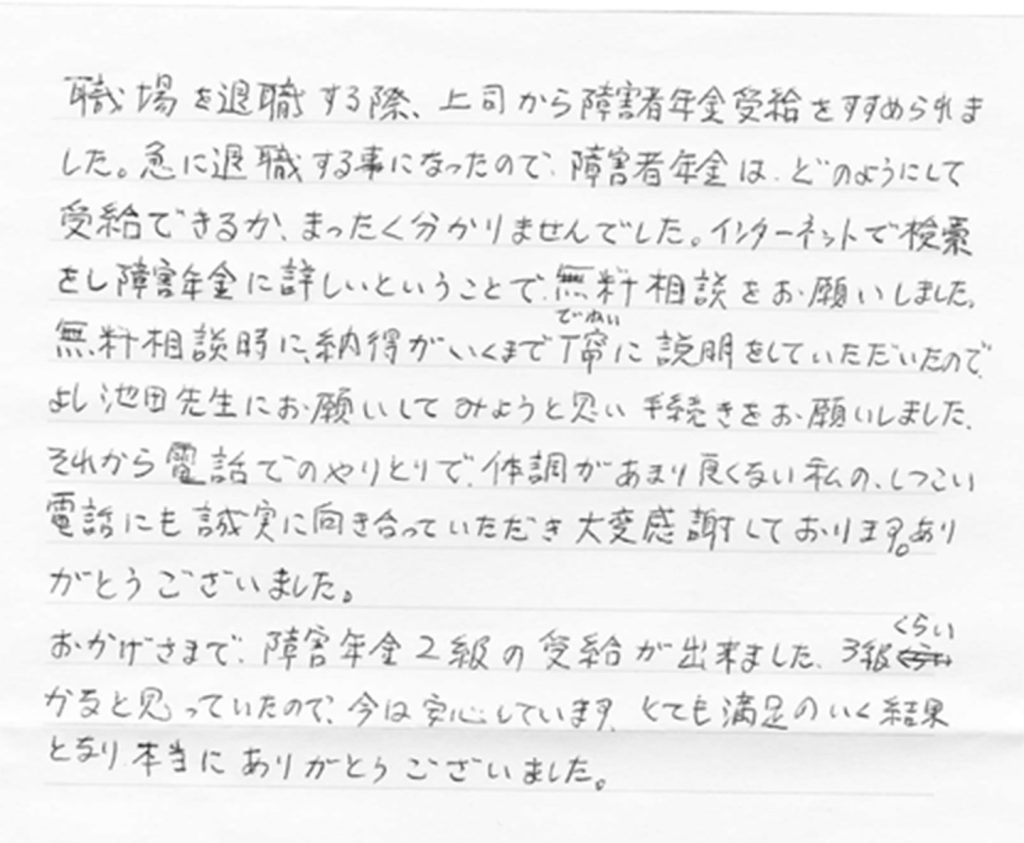 職場を退職する際、上司から障害者年金受給をすすめられま
した。急に退職する事になったので、障害者年金は、どのようにして
受給できるか、まったく分かりませんでした。インターネットで検索
をし障害年金に詳しいということで、無料相談をお願いしました。
でいねい
無料相談時に、納得がいくまで丁寧に説明をしていただいたので、
よし池田先生にお願いしてみようと思い手続きをお願いしました。
それから電話でのやりとりで、体調があまり良くない私の、しつこい
電話にも誠実に向き合っていただき大変感謝しております。あり
がとうございました。
くらい
おかげさまで、障害年金2級の受給が出来ました。3級
かなと思っていたので、今は安心しています。とても満足のいく結果
となり本当にありがとうございました。